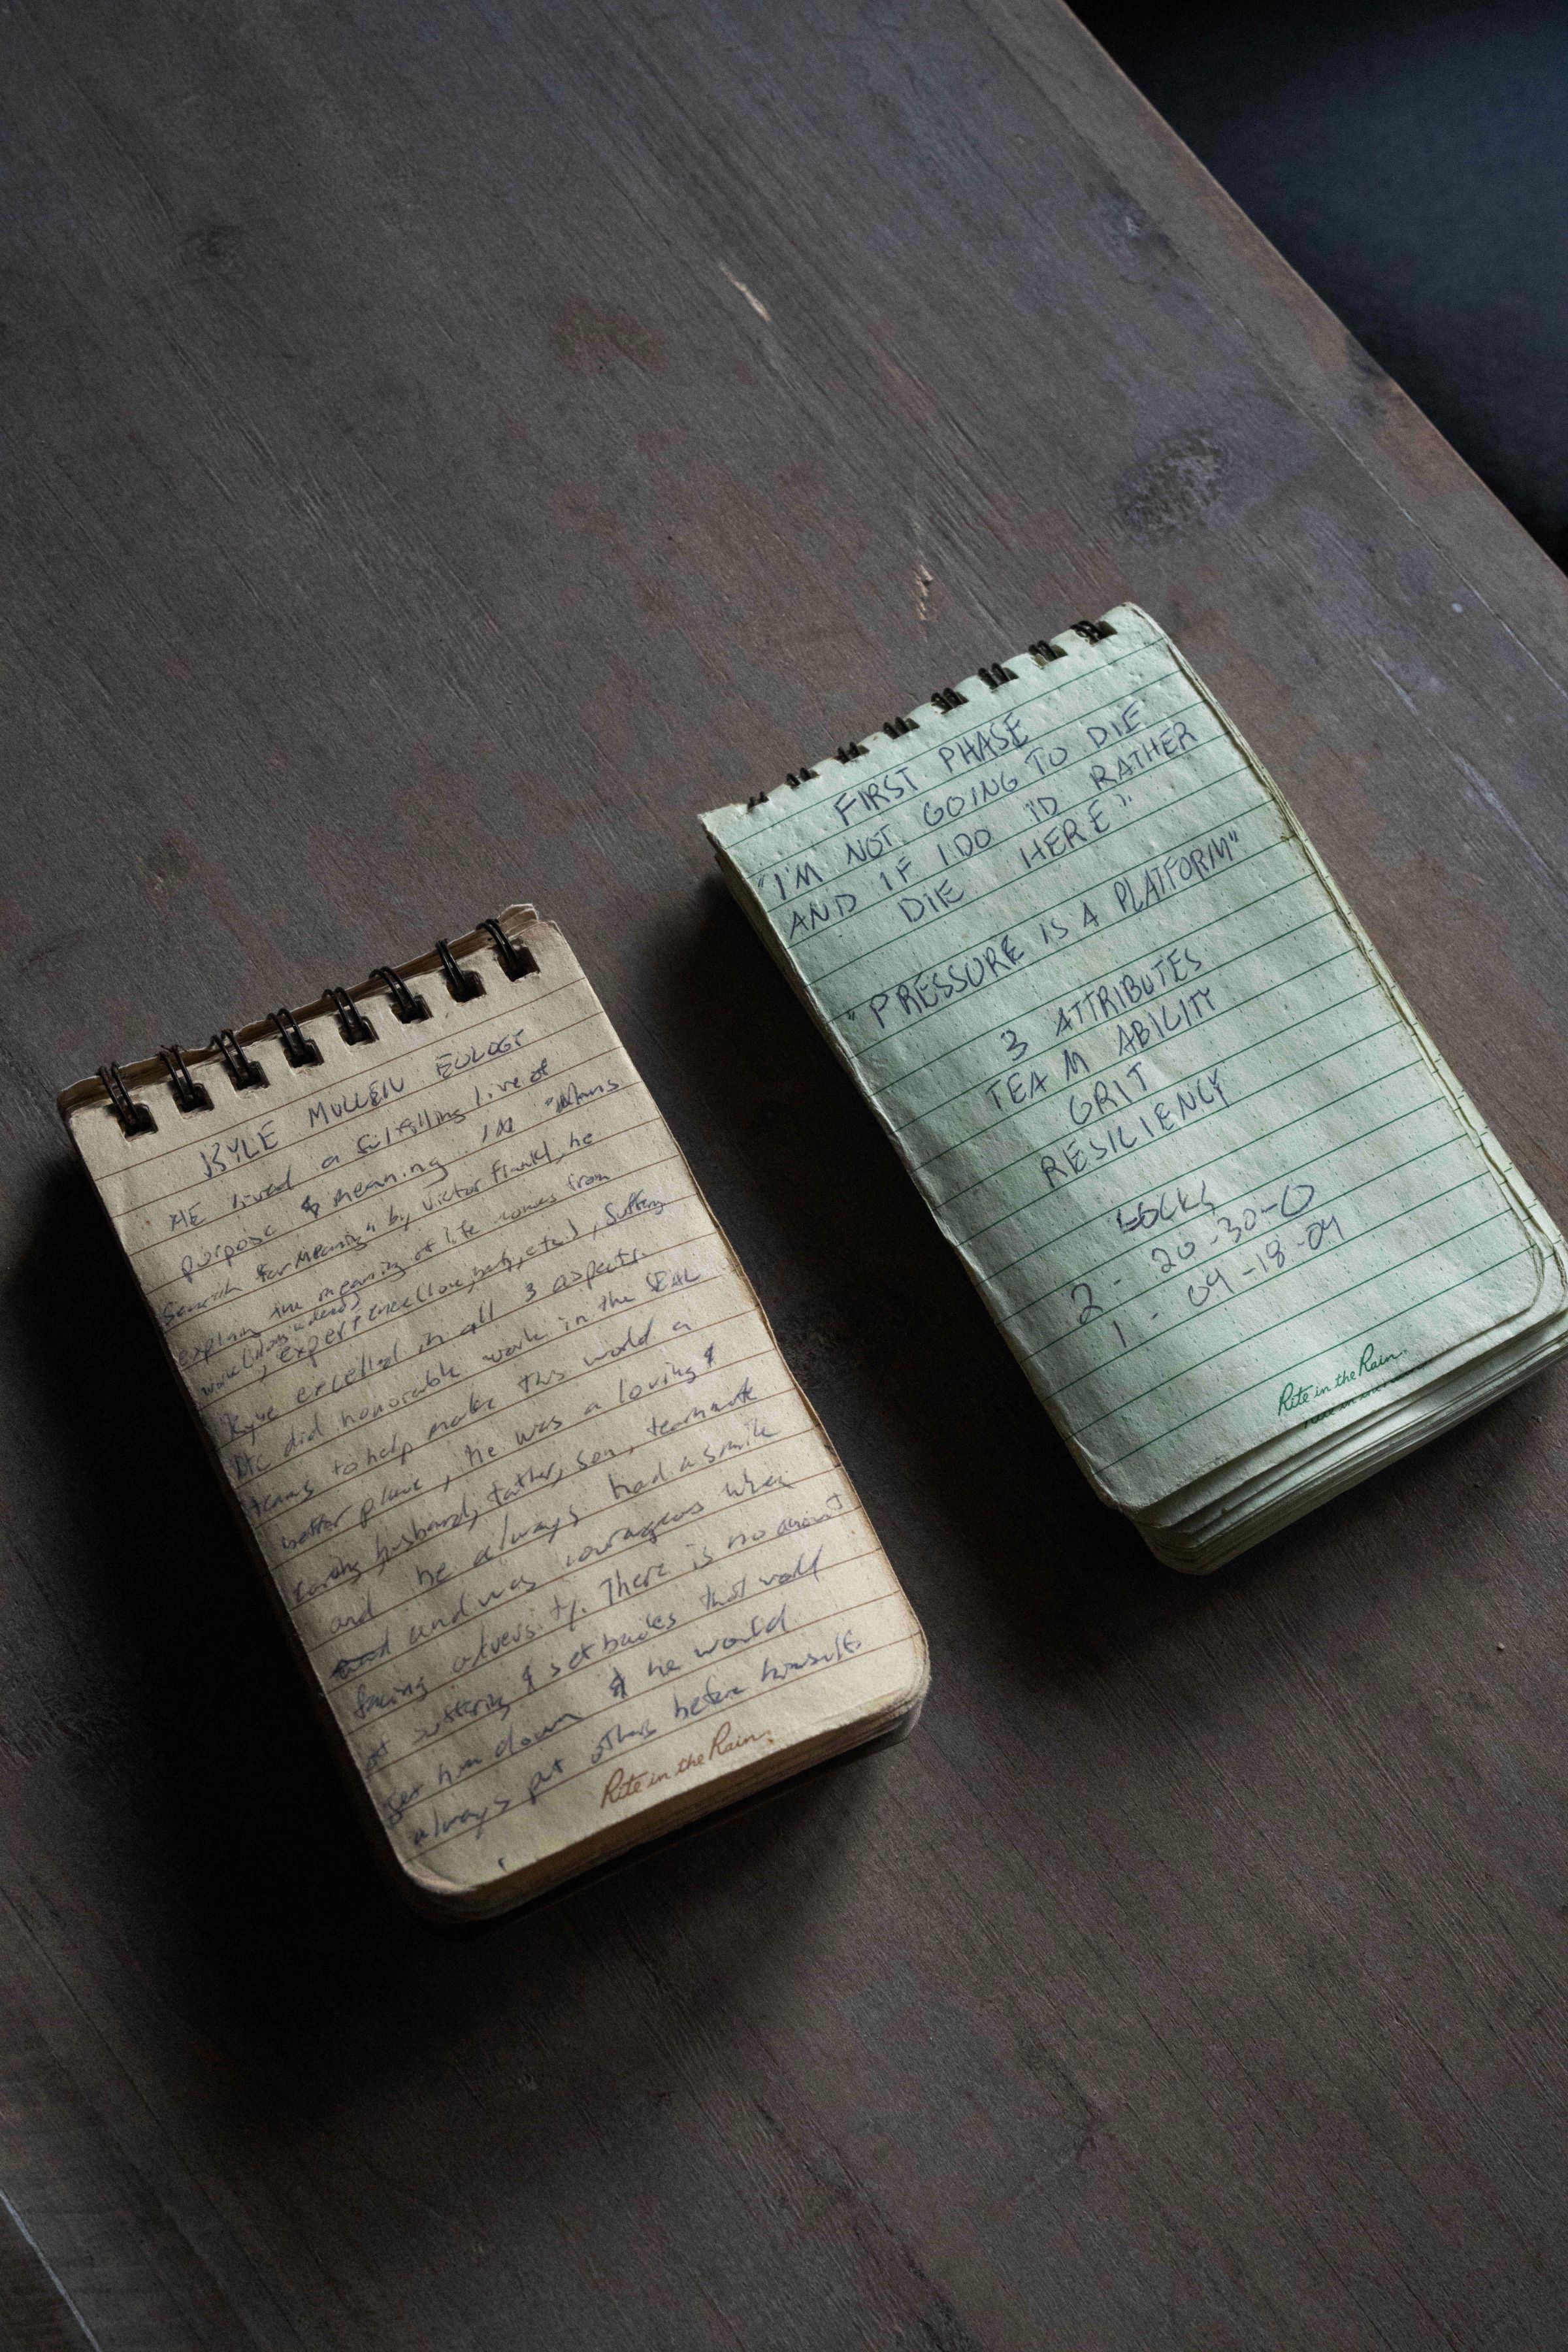 KYLE MULLEN EULOGY
HE lived a fulfilling live of
purpose & meaning. IN "Mans
Search for Meaning" by Victor Frankl, he
explains the meaning of life comes from
work (doing a deed), experience (love, beauty, etc.), suffering
Kyle excelled in all 3 aspects.
He did honorable work in the SEAL
teams to help make this world a
better place, he was a loving &
caring husband, father, son, teammate
and he always had a smile
and was courageous when
facing adversity. There is no amount
of suffering & setbacks that would
get him down & he would
always put others before himself.
Rite in the Rain
FIRST PHASE
"I'M NOT GOING TO DIE
AND IF I DO I'D RATHER
DIE HERE".
"PRESSURE IS A PLATFORM"
3 ATTRIBUTES
TEAM ABILITY
GRIT
RESILIENCY
LOCKS
2 - 20-30-0
1 - 04-18-04
Rite in the Rain